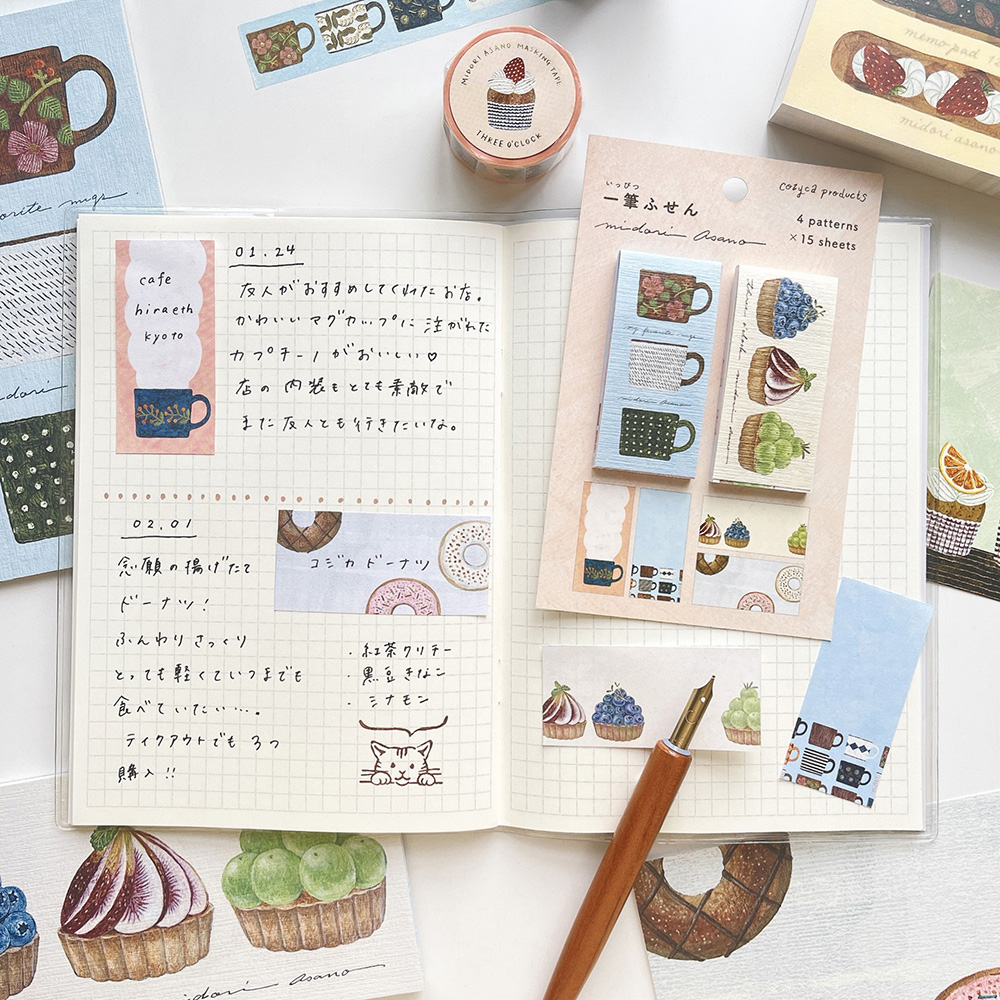 MIDORI ASANO MASKING TAPE
THREE O'CLOCK
memo pad
midori asano
favorite mugs
midori
cafe
hiraeth
kyoto
01.24
友人がおすすめしてくれたお店。
かわいいマグカップに注がれた
カプチーノがおいしい♡
店の内装もとても素敵で
また友人とも行きたいな。
02.01
念願の揚げたて
ドーナツ!
ふんわりさっくり
とっても軽くていつまでも
食べていたい…。
テイクアウトでも3つ
購入!!
コジカドーナツ
・紅茶クリチー
・黒豆きなこ
・シナモン
いっぴつ
一筆ふせん
midori asano
cozyca products
4 patterns
×15 sheets
my favorite mugs
midori asano
three o'clock midori asano
midori asano